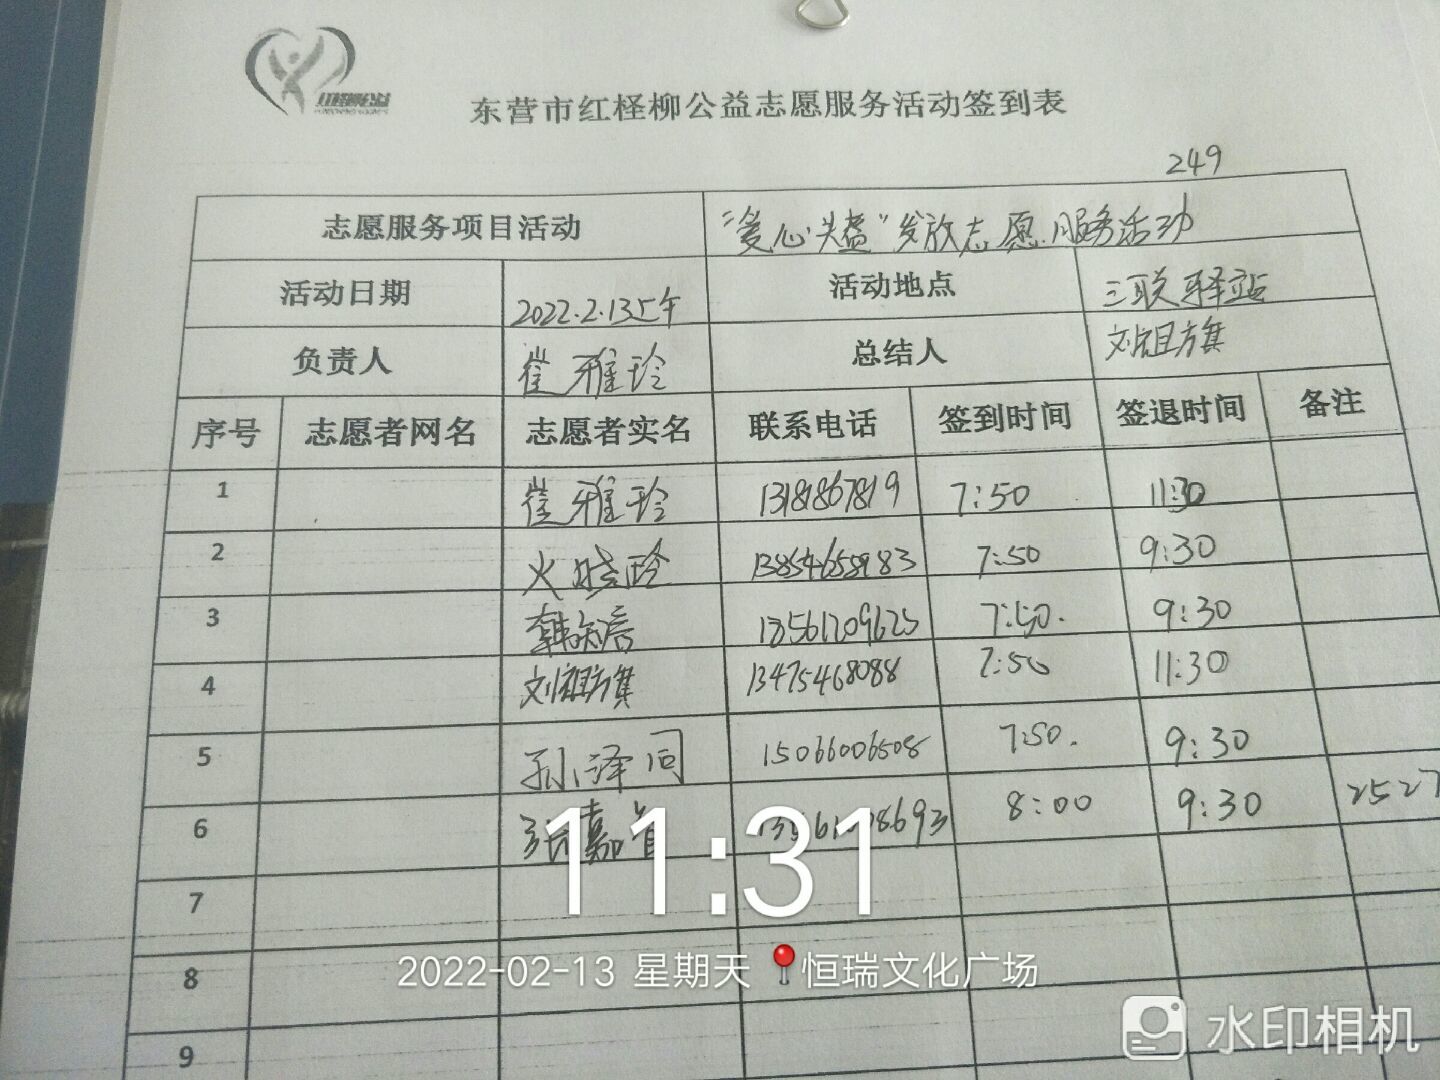 东营市红柽柳公益志愿服务活动签到表
249
志愿服务项目活动 “爱心头盔”发放志愿服务活动
活动日期 2022.2.13上午 活动地点 三联驿站
负责人 崔雅玲 总结人 刘祖旗
序号 志愿者网名 志愿者实名 联系电话 签到时间 签退时间 备注
1 崔雅玲 13181867819 7:50 11:30
2 7:50 9:30
3 韩 18561209625 7:50. 9:30
4 刘祖旗 13475468088 7:50 11:30
5 孙泽同 15066006508 7:50. 9:30
6 嘉 8:00 9:30 2527
7
8
9
11:31
2022-02-13 星期天 恒瑞文化广场
水印相机